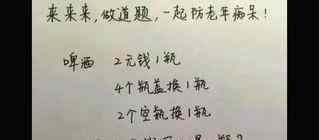 来来来,做道题,一起防老年痴呆!
啤酒 2元钱1瓶
4个瓶盖换1瓶
2个空瓶换1瓶